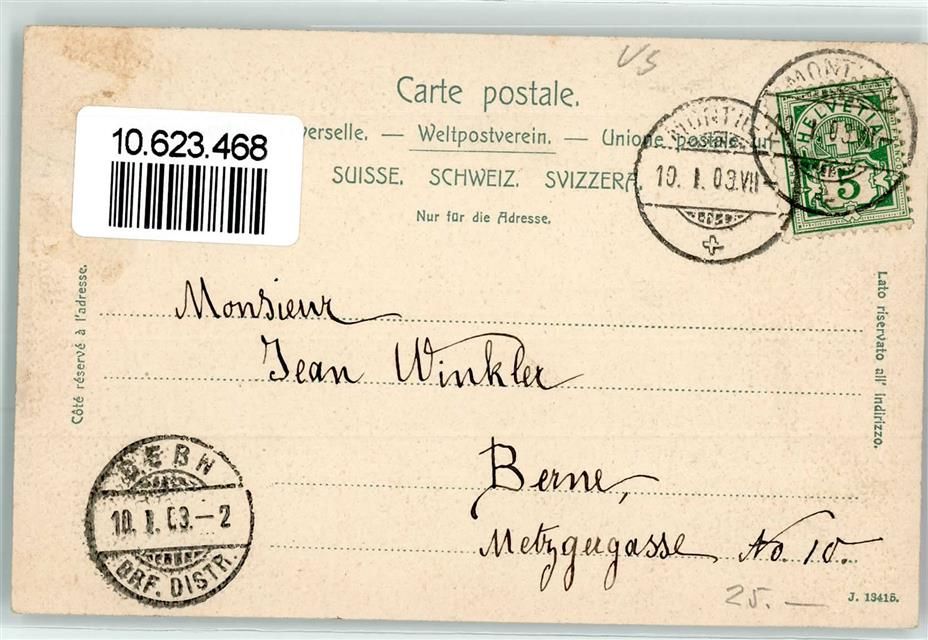 VS
Carte postale.
10.623.468
verselle. — Weltpostverein. — Unione postale un
SUISSE. SCHWEIZ. SVIZZERA.
Nur für die Adresse.
10. I. 03.VII
HELVETIA
5
Côté réservé à l'adresse.
Lato riservato all' indirizzo.
Monsieur
Jean Winkler
Berne,
Metzgergasse No. 10.
BERN
10. I. 03.-2
BRF. DISTR.
25. —
J. 13415.